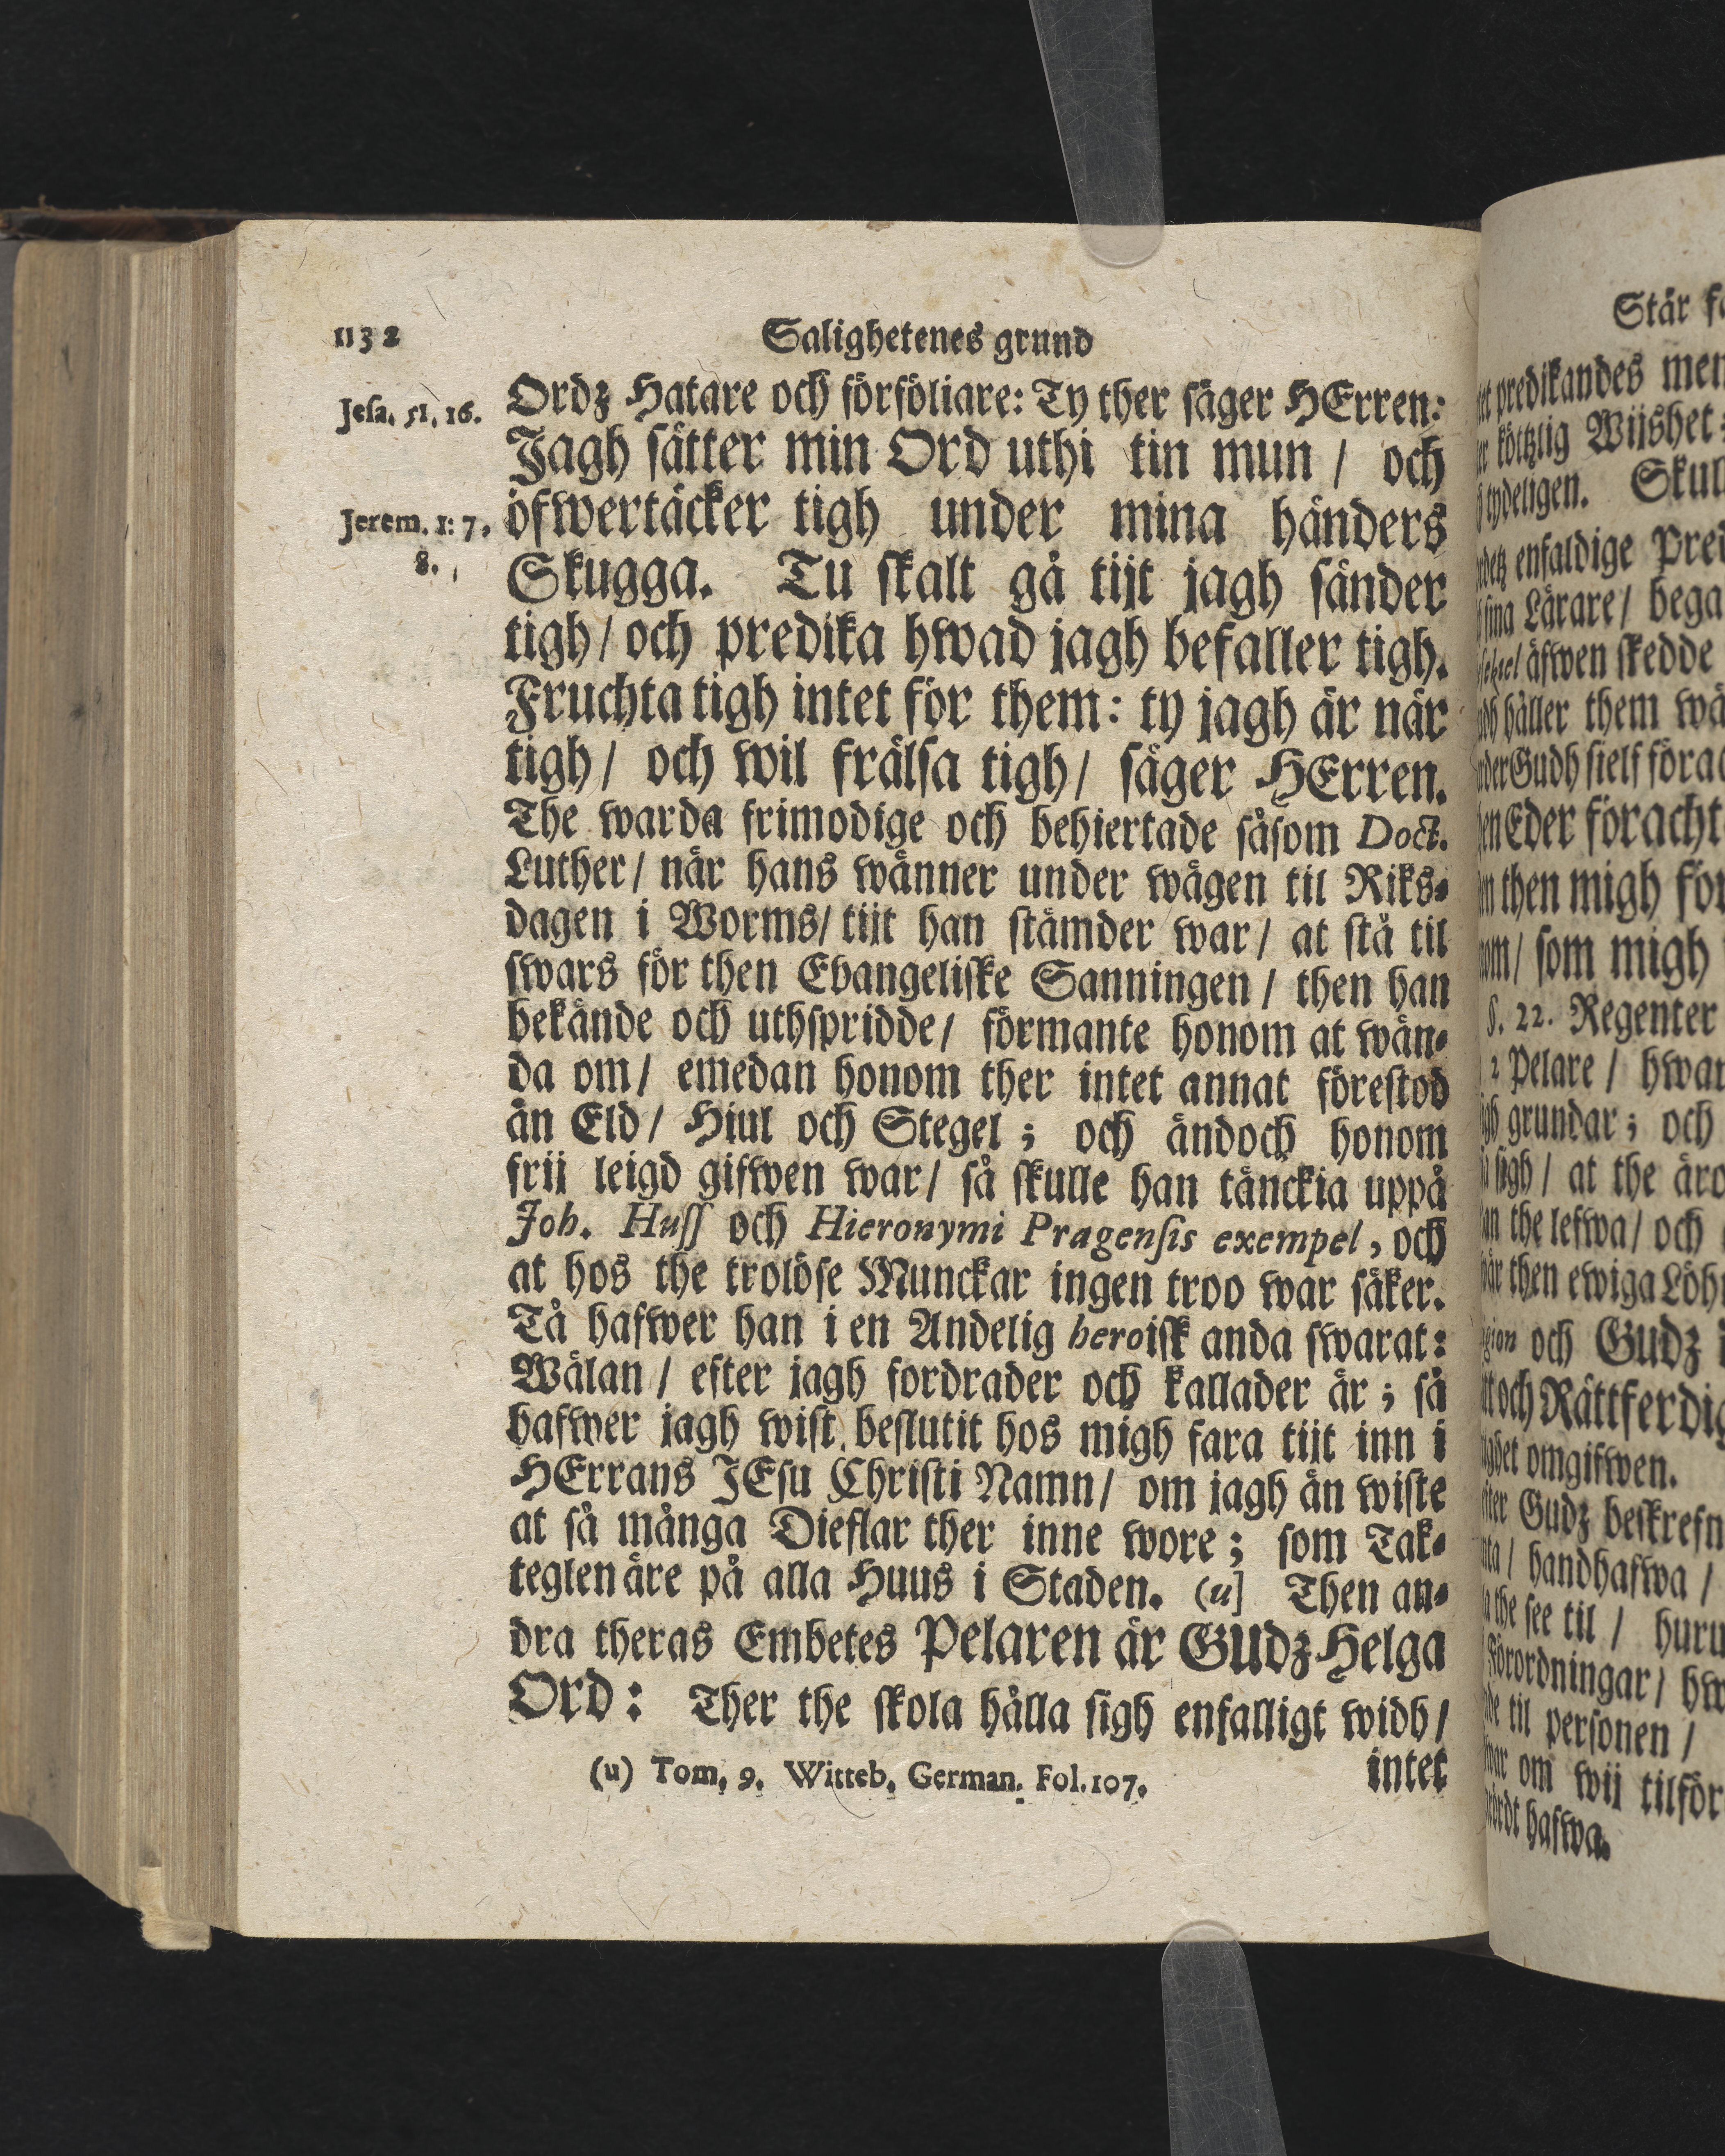 1132
Salighetenes grund
Jesa. 51, 16.
Jerem. 1: 7.
8.
Ordz Hatare och förföliare: Ty ther säger HErren:
Jagh sätter min Ord uthi tin mun / och
öfwertäcker tigh under mina händers
Skugga. Tu skalt gå tijt jagh sänder
tigh / och predika hwad jagh befaller tigh.
Fruchta tigh intet för them: ty jagh är när
tigh / och wil frälsa tigh / säger HErren.
The warda frimodige och behiertade såsom Doct.
Luther / när hans wänner under wägen til Riks-
dagen i Worms / tijt han stämder war / at stå til
swars för then Evangeliske Sanningen / then han
bekände och uthspridde / förmante honom at wän-
da om / emedan honom ther intet annat förestod
än Eld / Hiul och Stegel ; och ändoch honom
frij leigd gifwen war / så skulle han tänckia uppå
Joh. Huss och Hieronymi Pragensis exempel, och
at hos the trolöse Munckar ingen troo war säker.
Tå hafwer han i en Andelig heroisk anda swarat:
Wälan / efter jagh fordrader och kallader är ; så
hafwer jagh wist beslutit hos migh fara tijt inn i
HErrans JEsu Christi Namn / om jagh än wiste
at så många Dieflar ther inne wore ; som Tak-
teglen äre på alla Huus i Staden. (u] Then an-
dra theras Embetes Pelaren är GUdz Helga
Ord: Ther the skola hålla sigh enfalligt widh /
(u) Tom, 9. Witteb, German. Fol. 107.
intet
Står
predikandes
köttzlig Wijshet
tydeligen.
enfaldige
sina Lärare /
äfwen skedde
håller them
Gudh sielf
Eder föracht
then migh
som migh
§. 22. Regenter
2 Pelare /
grundar ; och
sigh / at the
the lefwa / och
then ewiga
och Gudz
och Rättferdig
omgifwen.
Gudz
handhafwa /
the see til /
Förordningar /
til personen /
om wij tilför
hafwa.